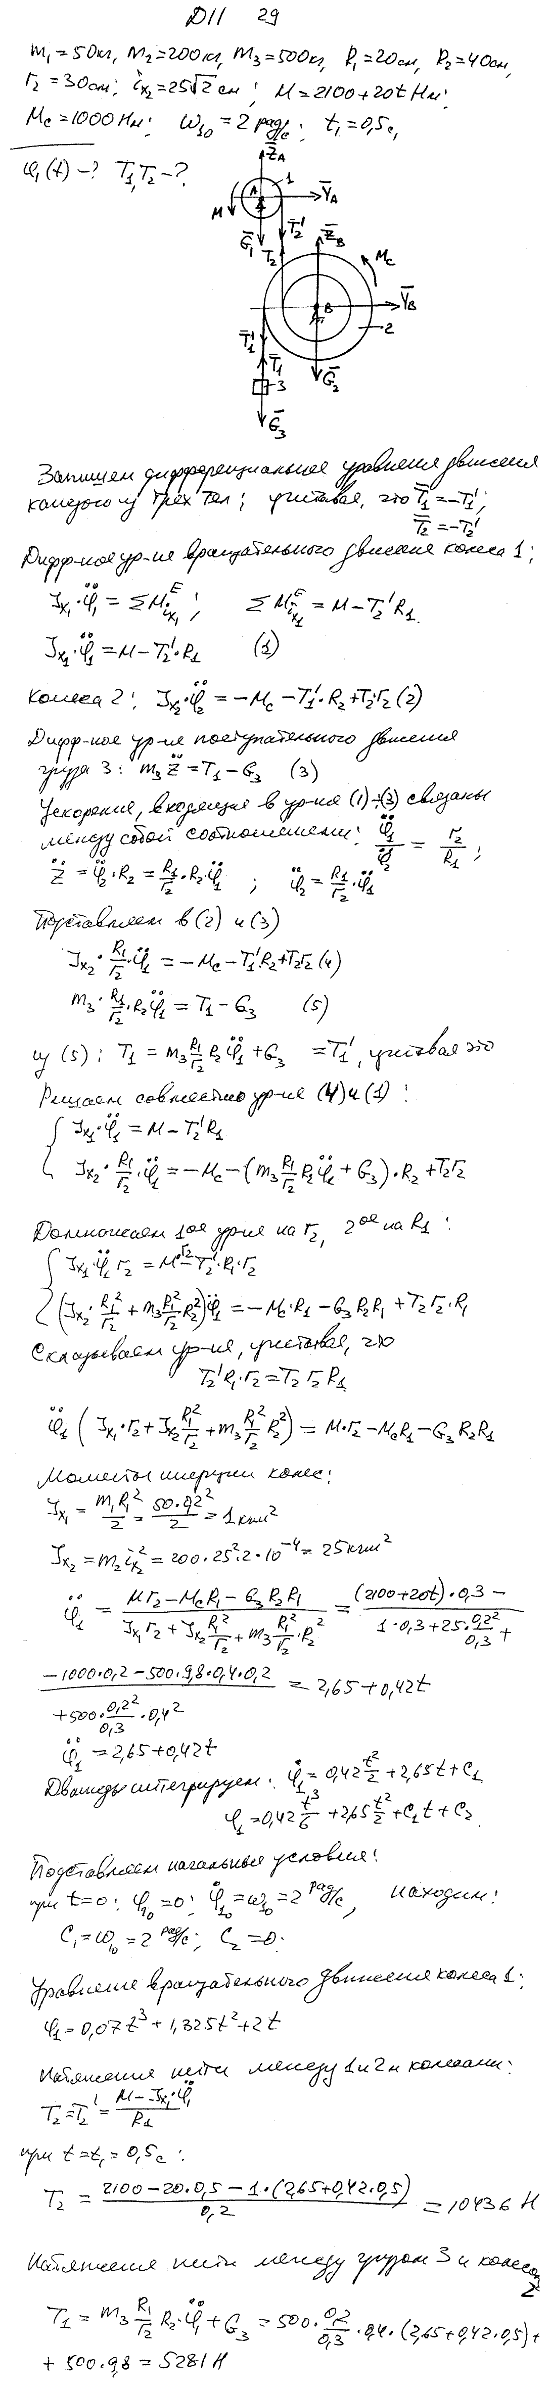 Д11 29
m₁=50кг, m₂=200кг, m₃=500кг, R₁=20см, R₂=40см,
r₂=30см; i_x₂=25√2 см; M=2100+20t Нм;
Mc=1000 Нм; ω₁₀=2 рад/с; t₁=0,5с,
φ₁(t)-? T₁,T₂-?
Z̄_A
A 1 Ȳ_A
M
Ḡ₁ T̄₂' Z̄_B
T₂ Mc
B Ȳ_B
2
T̄₁'
T̄₁ Ḡ₂
3
Ḡ₃
Запишем дифференциальные уравнения движения
каждого из трех тел; учитывая, что T̄₁=-T̄₁';
T̄₂=-T̄₂'
Дифф-ное ур-ие вращательного движения колеса 1:
J_x₁·φ̈₁=ΣM_ix₁^E; ΣM_ix₁^E=M-T₂'R₁
J_x₁·φ̈₁=M-T₂'·R₁ (1)
колеса 2: J_x₂·φ̈₂=-Mc-T₁'·R₂+T₂·r₂ (2)
Дифф-ное ур-ие поступательного движения
груза 3: m₃z̈=T₁-G₃ (3)
Ускорения, входящие в ур-ия (1)÷(3) связаны
между собой соотношениями: φ̈₁/φ̈₂=r₂/R₁;
z̈=φ̈₂·R₂=R₁/r₂·R₂·φ̈₁; φ̈₂=R₁/r₂·φ̈₁
Подставляем в (2) и (3)
J_x₂·R₁/r₂·φ̈₁=-Mc-T₁'R₂+T₂r₂ (4)
m₃·R₁/r₂·R₂φ̈₁=T₁-G₃ (5)
из (5): T₁=m₃R₁/r₂R₂φ̈₁+G₃ =T₁', учитывая это
Решаем совместно ур-ие (4) и (1):
J_x₁·φ̈₁=M-T₂'R₁
J_x₂·R₁/r₂·φ̈₁=-Mc-(m₃R₁/r₂R₂φ̈₁+G₃)·R₂+T₂r₂
Домножаем 1ое ур-ие на r₂, 2ое на R₁:
J_x₁·φ̈₁r₂=M·r₂-T₂'·R₁·r₂
(J_x₂·R₁²/r₂+m₃R₁²/r₂R₂²)φ̈₁=-Mc·R₁-G₃R₂R₁+T₂r₂·R₁
Складываем ур-ие, учитывая, что
T₂'R₁·r₂=T₂r₂R₁
φ̈₁(J_x₁·r₂+J_x₂R₁²/r₂+m₃R₁²/r₂R₂²)=M·r₂-McR₁-G₃R₂R₁
Моменты инерции колес:
J_x₁=m₁R₁²/2=50·0,2²/2=1 кгм²
J_x₂=m₂i_x₂²=200·25²·2·10⁻⁴=25кгм²
φ̈₁=(Mr₂-McR₁-G₃R₂R₁)/(J_x₁r₂+J_x₂R₁²/r₂+m₃R₁²/r₂·R₂²)=(2100+20t)·0,3-/1·0,3+25·0,2²/0,3+
-1000·0,2-500·9,8·0,4·0,2/+500·0,2²/0,3·0,4²=2,65+0,42t
φ̈₁=2,65+0,42t
Дважды интегрируем: φ̇₁=0,42t²/2+2,65t+C₁
φ₁=0,42t³/6+2,65t²/2+C₁t+C₂
Подставляем начальные условия:
при t=0: φ₁₀=0; φ̇₁₀=ω₁₀=2 рад/с, находим:
C₁=ω₁₀=2 рад/с; C₂=0.
Уравнение вращательного движения колеса 1:
φ₁=0,07t³+1,325t²+2t
Натяжение нити между 1 и 2м колесами:
T₂=T₂'=(M-J_x₁·φ̈₁)/R₁
при t=t₁=0,5с:
T₂=(2100-20·0,5-1·(2,65+0,42·0,5))/0,2=10436 Н
Натяжение нити между грузом 3 и колесом 2
T₁=m₃R₁/r₂R₂·φ̈₁+G₃=500·0,2/0,3·0,4·(2,65+0,42·0,5)+
+500·9,8=5281Н